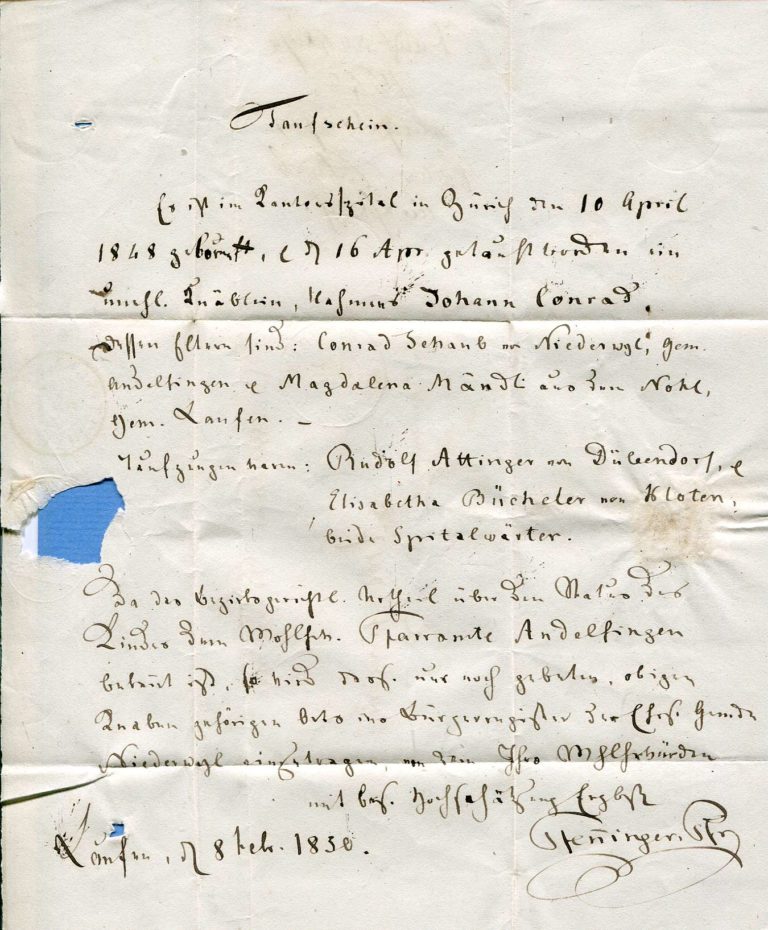 Taufschein.
Es ist im Kantonsspital in Zürich den 10 April
1848 geboren, & d 16 Apr. getauft worden ein
unehl. Knäblein, Nahmens Johann Conrad,
dessen Eltern sind: Conrad Schaub von Niederwyl, Gem.
Andelfingen & Magdalena Mändli aus dem Nohl,
Gem. Laufen. –
Taufzeugen waren: Rudolf Attinger von Dübendorf, &
Elisabetha Bücheler von Kloten,
beide Spitalwärter.
Da das bezirksgerichtl. Urtheil über den Status des
Kindes dem Wohlehrw. Pfarramte Andelfingen
bekannt ist, so wird dass. nur noch gebeten, obigen
Knaben gehörigen Orts ins Bürgerregister der Ehrs. Gemde
Niederwyl einzutragen, von dem Ihro Wohlehrwürden
mit bes. Hochschätzung Ergebst
Laufen, d 8 Feb. 1850.
Pfenninger, Pfr